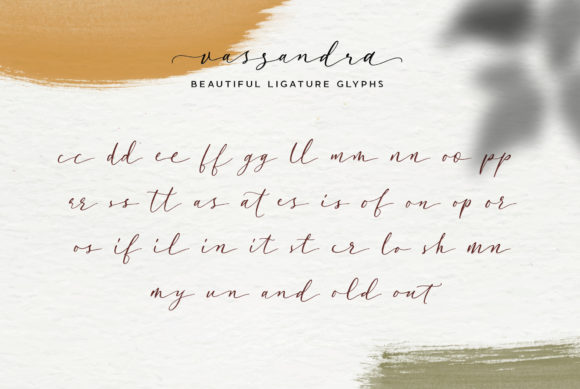 vassandra
BEAUTIFUL LIGATURE GLYPHS
cc dd ee ff gg ll mm nn oo pp
rr ss tt as at es is of on op or
os if il in it st er lo sh mn
my un and old out